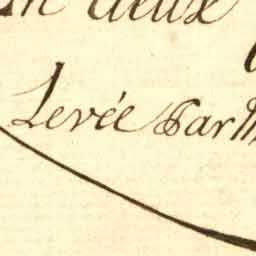 en deux
Levée Par M